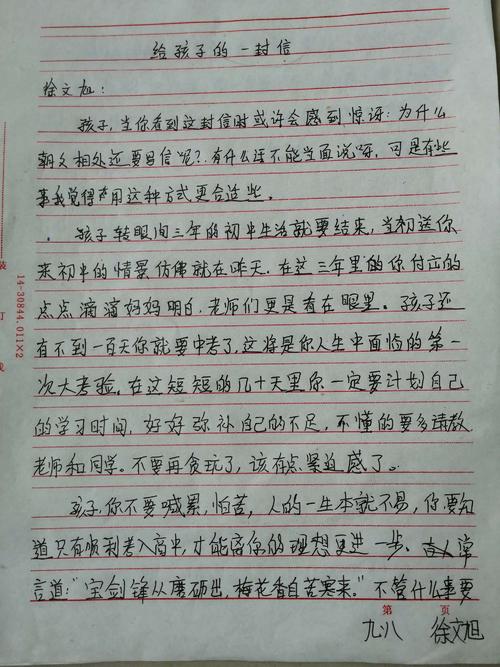 给孩子的一封信
徐文旭：
孩子，当你看到这封信时或许会感到惊讶：为什么
朝夕相处还要写信呢？有什么话不能当面说呀，可是有些
事我觉得用这种方式更合适些。
孩子转眼间三年的初中生活就要结束，当初送你
来初中的情景仿佛就在昨天。在这三年里的你付出的
点点滴滴妈妈明白，老师们更是看在眼里。孩子还
有不到一百天你就要中考了，这将是你人生中面临的第一
次大考验。在这短短的几十天里你一定要计划自己
的学习时间，好好弥补自己的不足，不懂的要多请教
老师和同学。不要再贪玩了，该有点紧迫感了。
孩子，你不要喊累，怕苦，人的一生本就不易，你要知
道只有顺利考入高中，才能离你的理想更进一步。古人
言道："宝剑锋从磨砺出，梅花香自苦寒来。"不管什么事要
第 页
九.八 徐文旭
装
订
线
14-30844.011×2